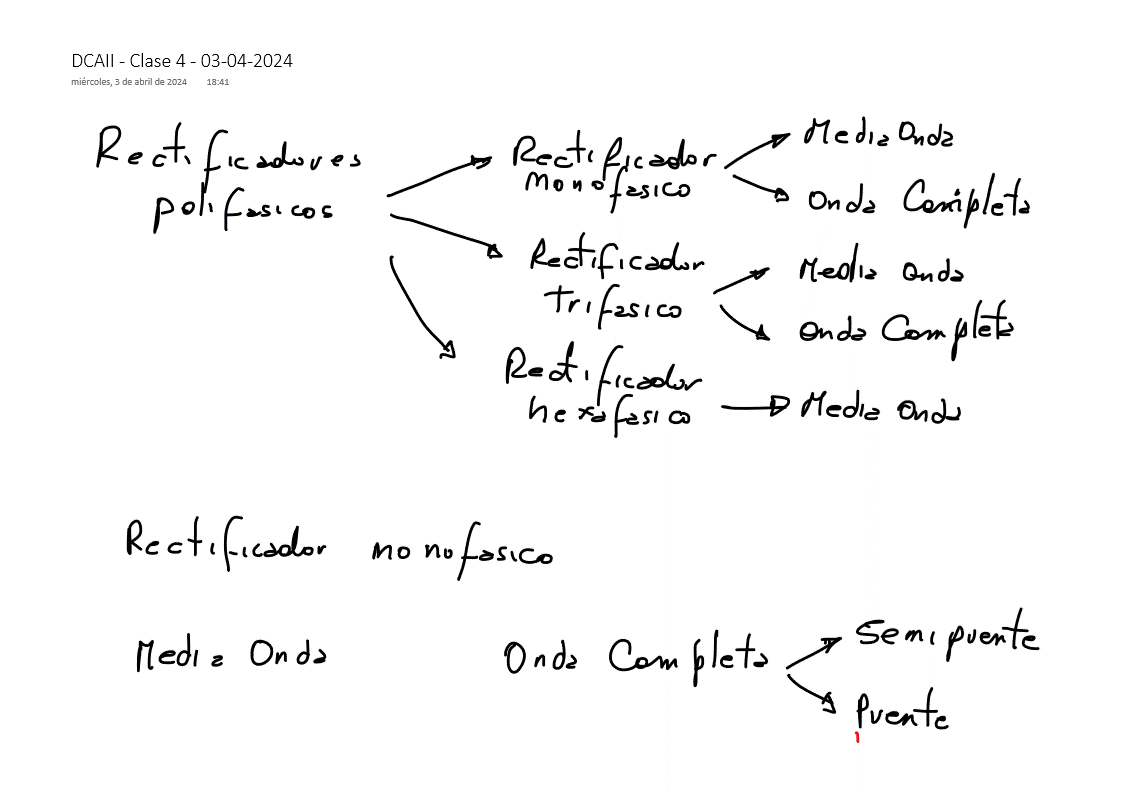 DCAII - Clase 4 - 03-04-2024
miércoles, 3 de abril de 2024 18:41
Rectificadores
polifasicos
Rectificador
monofasico
Media Onda
Onda Completa
Rectificador
trifasico
Media Onda
Onda Completa
Rectificador
hexafasico
Media Onda
Rectificador monofasico
Media Onda
Onda Completa
Semipuente
Puente